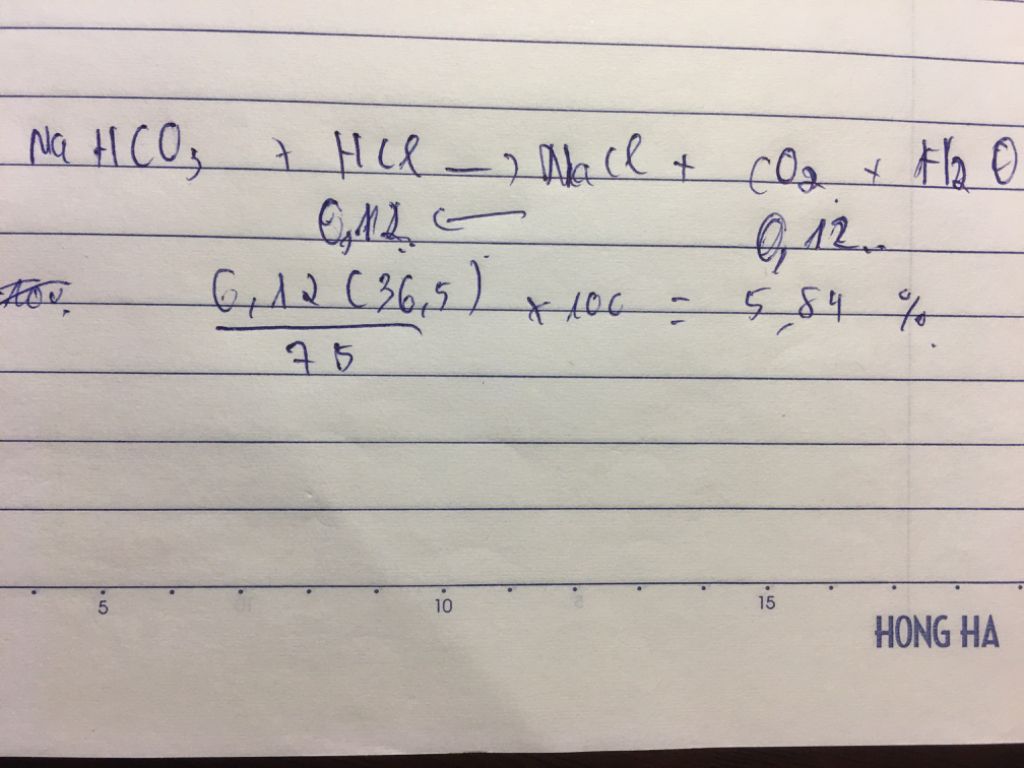 NaHCO3 + HCl → NaCl + CO2 + H2O
0,12 ← 0,12
0,12 (36,5) / 75 x 100 = 5,84 %
5 10 15
HONG HA